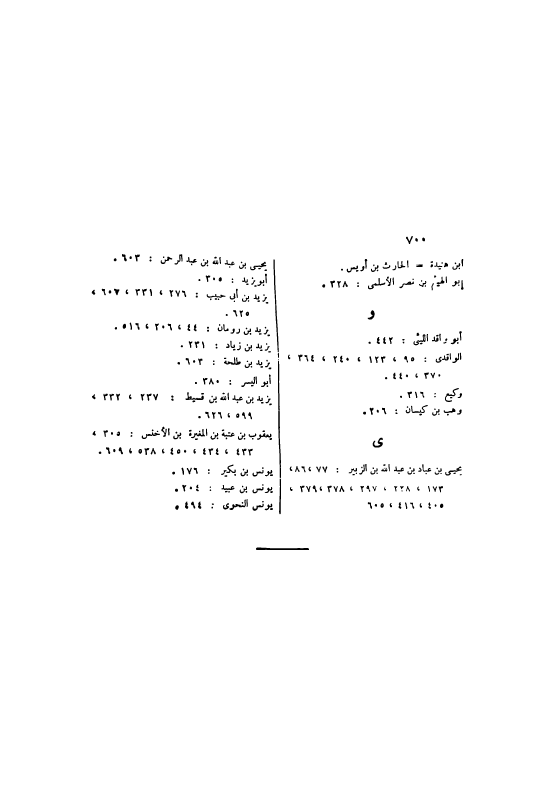 ٧٠٠
ابن هنيدة = الحارث بن أويس.
أبو الهيثم بن نصر الأسلمى : ٣٢٨.
و
أبو واقد الليثى : ٤٤٢.
الواقدى : ٩٥ ، ١٢٣ ، ٢٤٠ ، ٣٦٤ ،
٣٧٠ ، ٤٤٠.
وكيع : ٣١٦.
وهب بن كيسان : ٢٠٦.
ى
يحيى بن عباد بن عبد الله بن الزبير : ٧٧ ، ٨٦ ،
١٧٣ ، ٢٢٨ ، ٢٩٧ ، ٣٧٨ ، ٣٧٩ ،
٤٠٥ ، ٤١٦ ، ٦٠٥
يحيى بن عبد الله بن عبد الرحمن : ٦٠٣.
أبو يزيد : ٣٠٥.
يزيد بن أبى حبيب : ٢٧٦ ، ٣٣١ ، ٦٠٧ ،
٦٢٥.
يزيد بن رومان : ٤٤ ، ٢٠٦ ، ٥١٦.
يزيد بن زياد : ٢٣١.
يزيد بن طلحة : ٦٠٣.
أبو اليسر : ٣٨٠.
يزيد بن عبد الله بن قسيط : ٢٣٧ ، ٣٣٢ ،
٥٩٩ ، ٦٢٦.
يعقوب بن عتبة بن المغيرة بن الأخنس : ٣٠٥ ،
٤٣٣ ، ٤٣٤ ، ٤٥٠ ، ٥٣٨ ، ٦٠٩.
يونس بن بكير : ١٧٦.
يونس بن عبيد : ٢٠٤.
يونس النحوى : ٤٩٤.